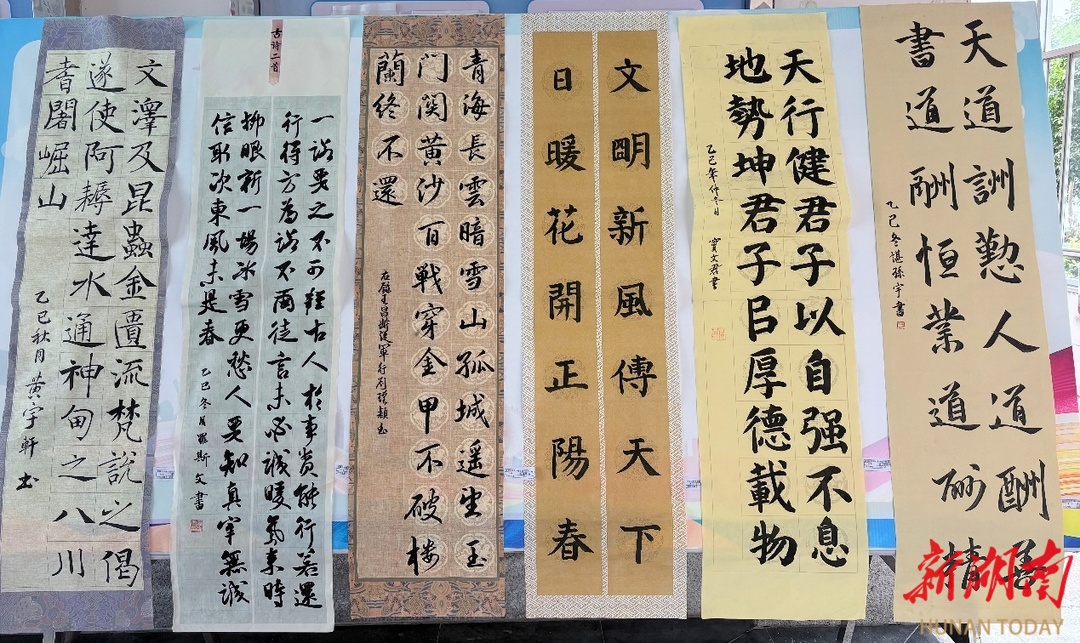 文澤及昆蟲金匱流梵說之偈
遂使阿耨達水通神甸之八川
耆闍崛山
乙巳秋月黄宇軒书
古诗二首
一諾要之不可輕古人於事貴能行若還
行得方為諾不爾徒言未必誠暖氣来時
柳眼新一場冰雪更愁人要知真宰無誠
信取次東風未是春
乙巳冬月斯文書
青海長雲暗雪山孤城遥望玉
门関黄沙百戰穿金甲不破樓
蘭终不還
右錄王昌齡從軍行
文明新風傳天下
日暖花開正陽春
天行健君子以自强不息
地勢坤君子㠯厚德載物
乙巳年仲冬月
竇文君書
天道詶懃人道酬善
書道酬恒業道酬精
乙巳冬諶孫宇書
新湖南
HUNAN TODAY